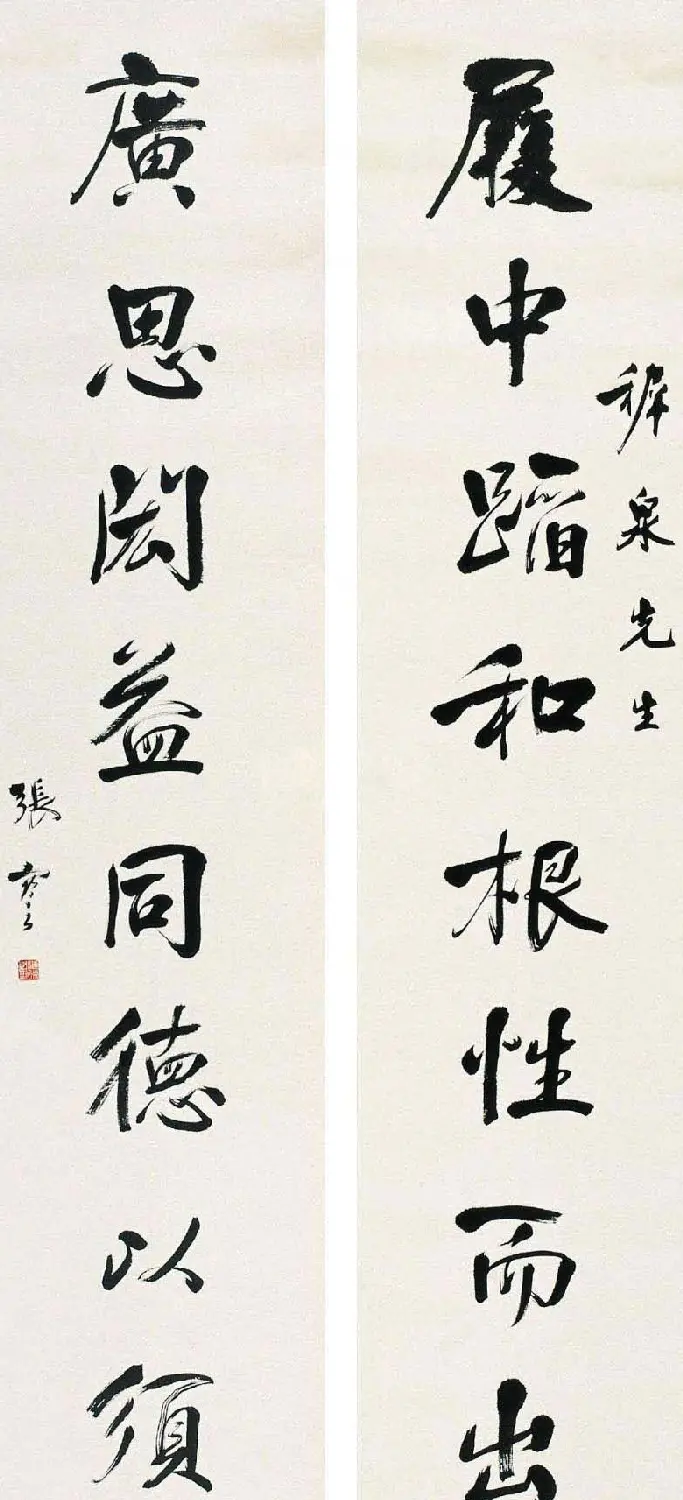 稺泉先生
履中蹈和根性而出
廣思閎益同德以須
張謇